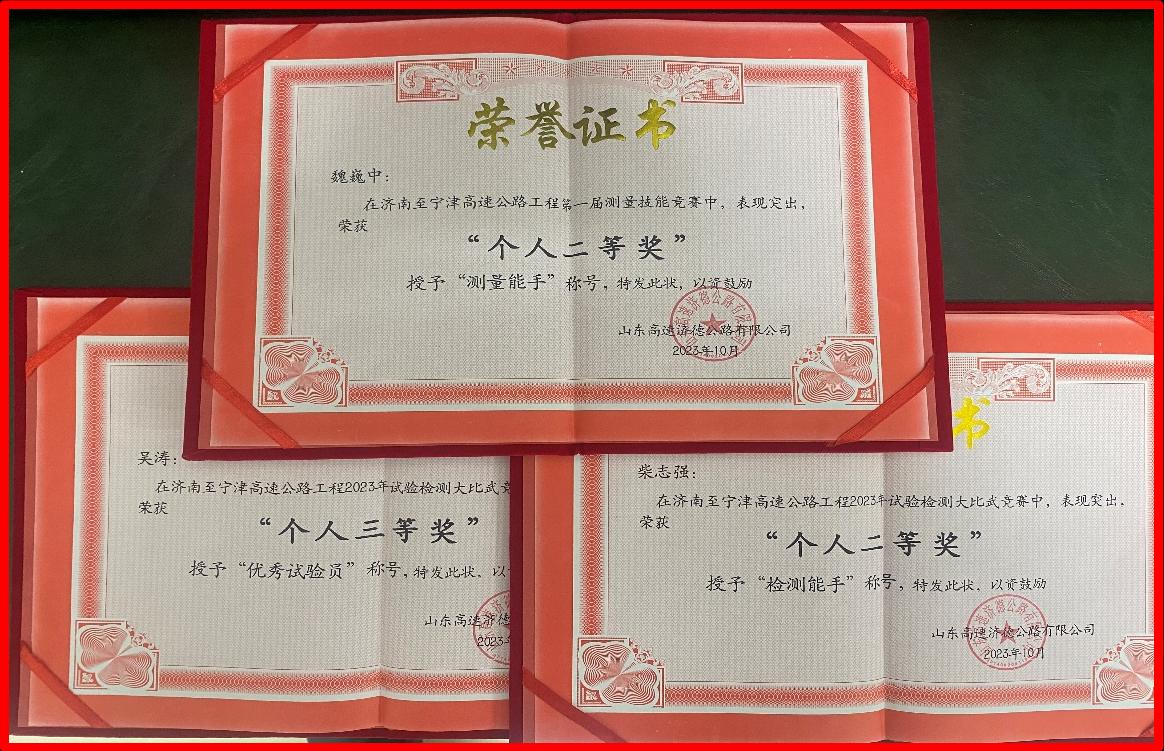 荣誉证书
魏巍中：
在济南至宁津高速公路工程第一届测量技能竞赛中，表现突出，
荣获
“个人二等奖”
授予“测量能手”称号，特发此状，以资鼓励
山东高速济德公路有限公司
2023年10月
吴涛：
在济南至宁津高速公路工程2023年试验检测大比武竞
荣获
“个人三等奖”
授予“优秀试验员”称号，特发此状、以
山东高速济德
2023年
书
柴志强：
在济南至宁津高速公路工程2023年试验检测大比武竞赛中，表现突出，
荣获
“个人二等奖”
授予“检测能手”称号，特发此状、以资鼓励
山东高速济德公路有限公司
2023年10月